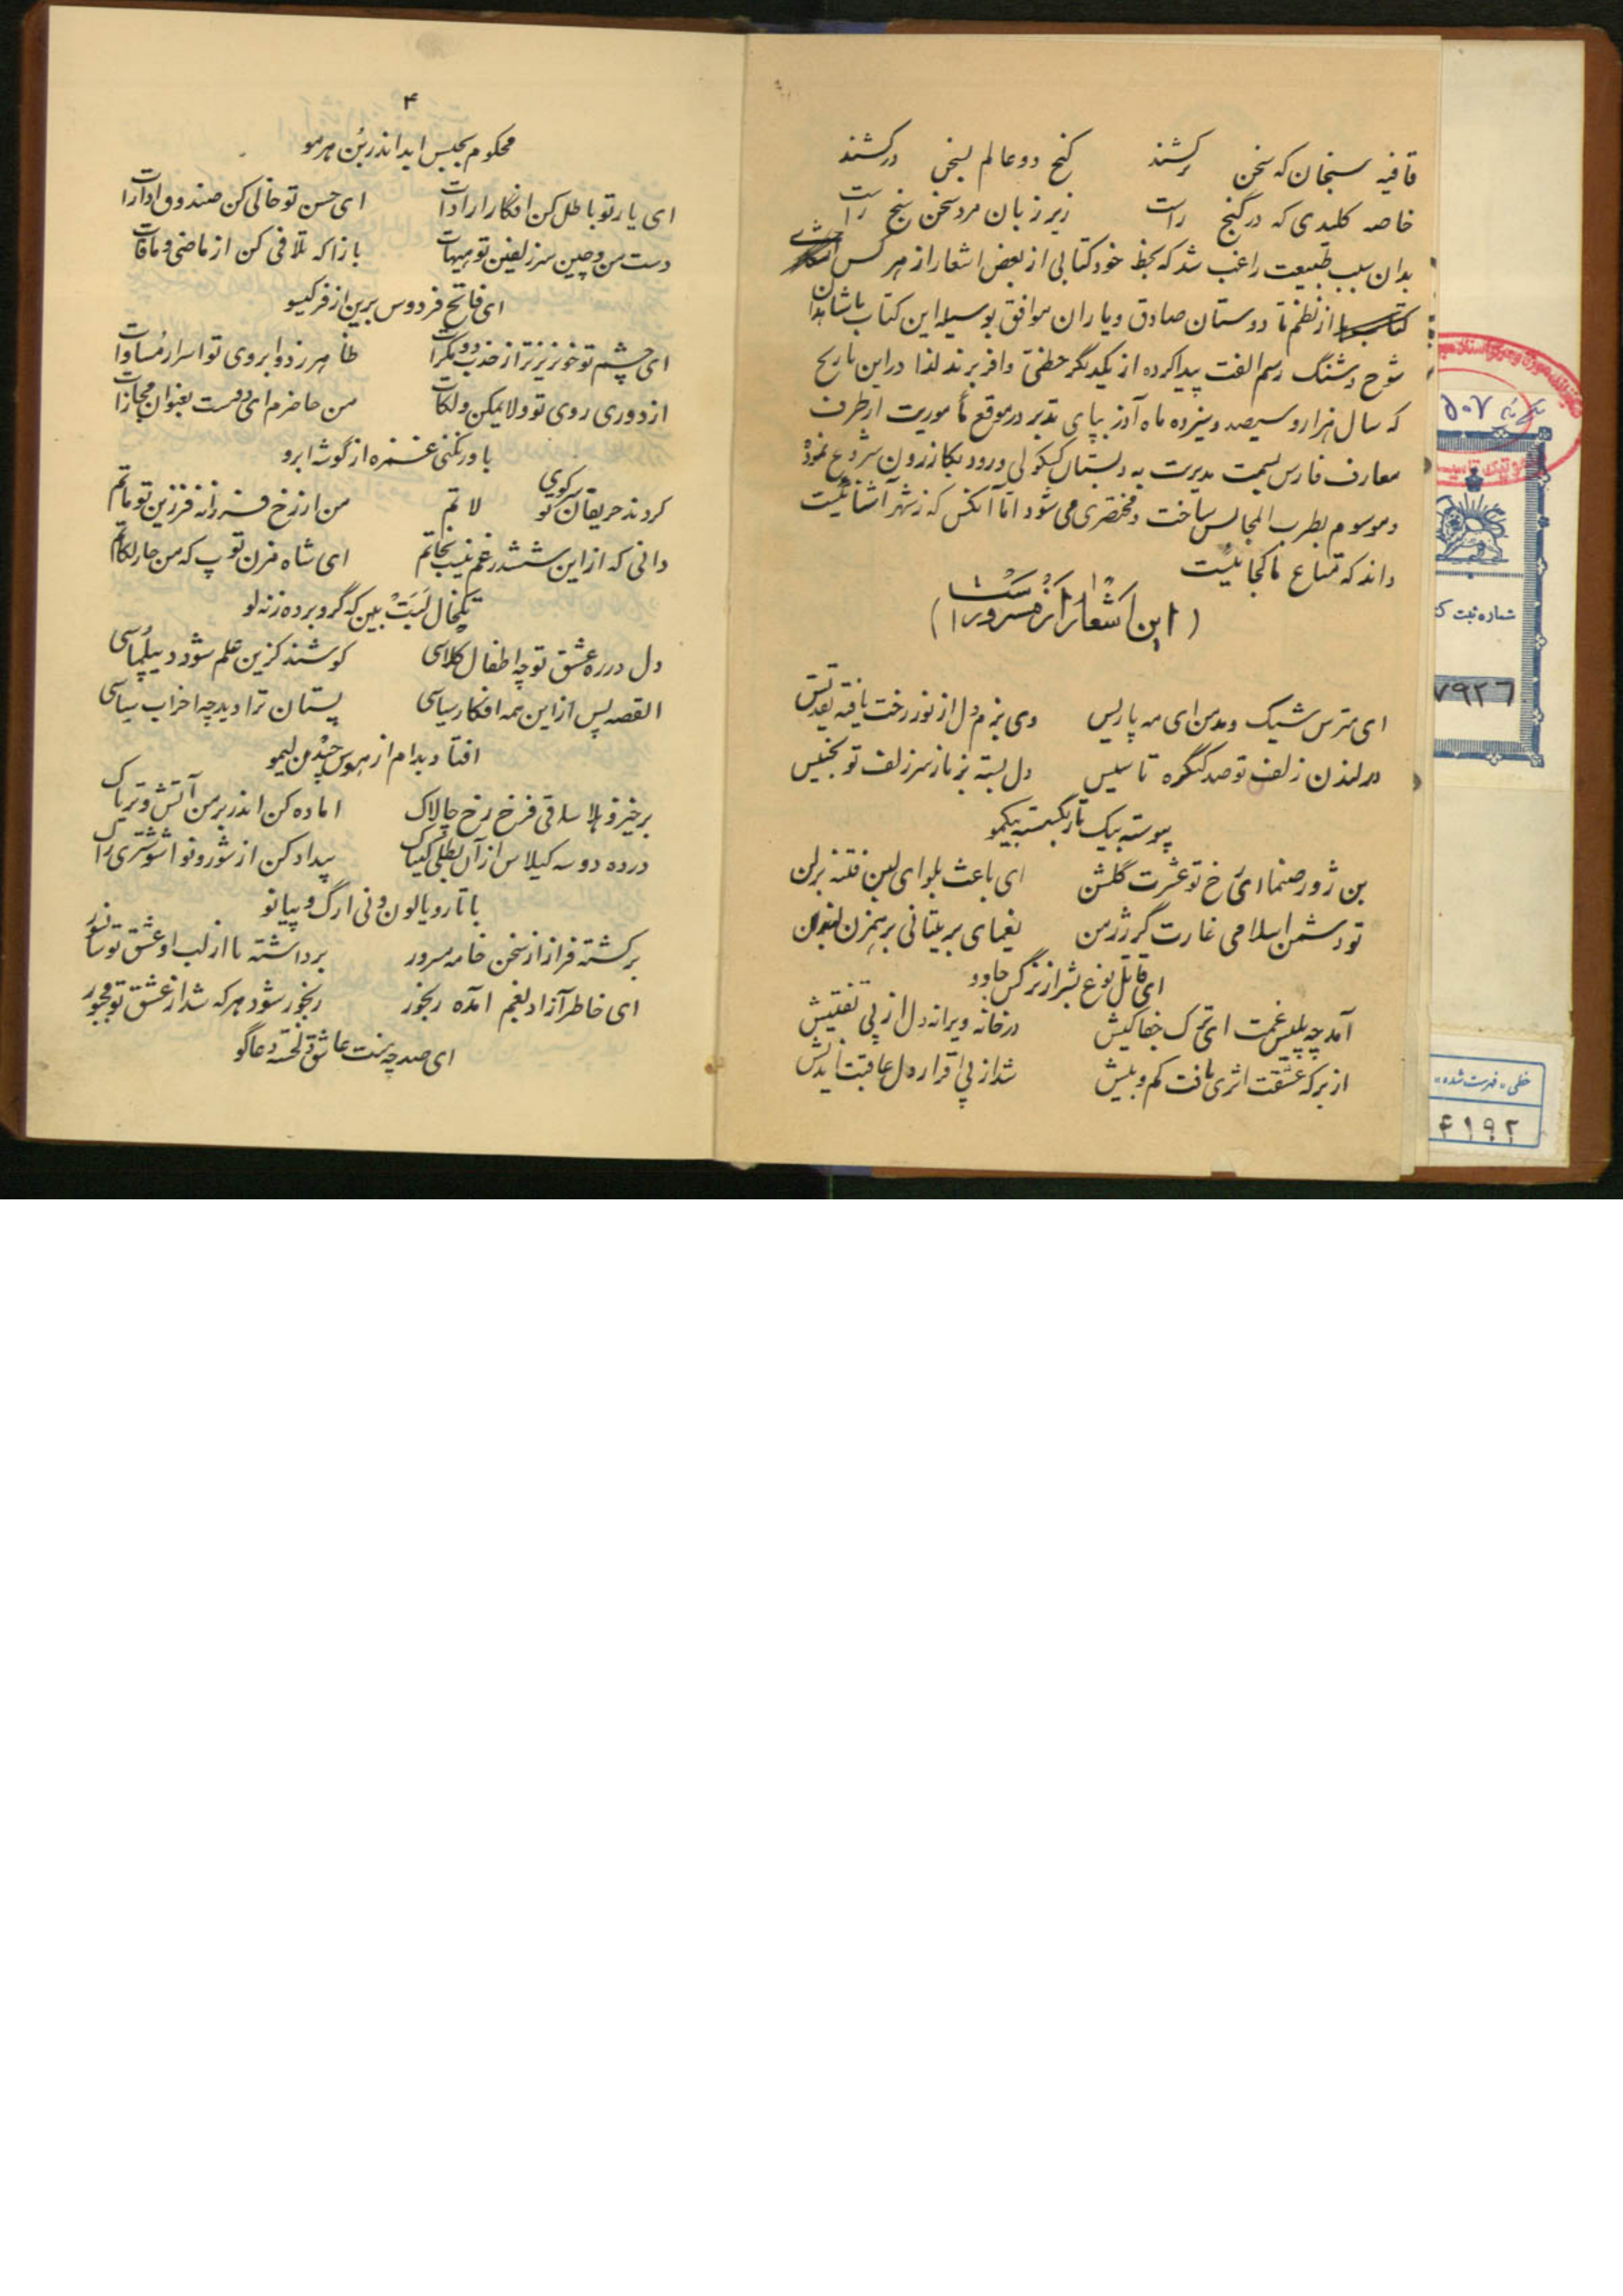 قافیه سنجان که سخن برکشند گنج دو عالم بسخن درکشند
خاصه کلیدی که در گنج راست زیر زبان مرد سخن سنج راست
بدان سبب طبیعت راغب شد که بخط خود کتابی از بعض اشعار از هر کس
از نظم تا دوستان صادق و یاران موافق بوسیله این کتاب با شاهدان
شوخ و شنگ رسم الفت پیدا کرده از یکدیگر حظی وافر برند لذا در این تاریخ
که سال هزار و سیصد و سیزده ماه آذر بپای تدبر در موقع مأموریت از طرف
معارف فارس بسمت مدیریت به دبستان و ورود بکازرون شروع نمود
و موسوم بطرب المجالس ساخت و مختصری می شود اما آنکس که ز شهر آشنائیست
داند که متاع ما کجائیست
(این اشعار از مسرور است)
ای مترس شیک و مدمن ای مه پاریس وی بزم دل از نور رخت یافته تقدیس
در لندن زلف تو صد کنگره تاسیس دل بسته بز باز سر زلف تو بتجنیس
پیوسته بیک تار بگسسته بیکمو
بن ژور صنما ای رخ تو عشرت گلشن ای باعث بلوای لبین فتنه برلن
تو دشمن اسلامی غارت گر ژرمن یغمای بریتانی برهمزن لندن
ای قاتل نوع بشر از نرگس جادو
آمد چه پلیس غمت ای ترک جفا کیش در خانه ویرانه دل از پی تفتیش
از برکه عشقت اثری یافت کم و بیش شد از پی اقرار دل عاقبت اندیش
۴
محکوم بحبس ابد اندر بن هر مو
ای یار تو باطل کن افکار ارادات ای حسن تو خالی کن صندوق ادارات
دست من و چین سر زلفین تو هیهات بازا که تلافی کن از ماضی و مافات
ای فاتح فردوس برین از فر گیسو
ای چشم تو خونریزتر از حزب دومکرات ظاهر ز دو ابروی تو اسرار مساوات
از دوری روی تو ولا یمکن ولکات من حاضرم ای دوست بعنوان مجازات
باور نکنی غمزه از گوشه ابرو
کردند حریفان سر کوی تو لاتم من از رخ فرزانه فرزین تو ماتم
دانی که از این ششدر غم نیست نجاتم ای شاه مزن توپ که من چار لکاتم
تکخال لبت بین که گرو برده ز نه لو
دل در ره عشق تو چه اطفال کلاسی کوشند کزین علم شود دیپلماسی
القصه پس از این همه افکار سیاسی پستان ترا دید چه احزاب سیاسی
افتاد بدام از هوس چیدن لیمو
برخیز و هلا ساقی فرخ رخ چالاک اماده کن اندر بر من آتش و تریاک
در ده دو سه گیلاس از آن بطلی کنیاک بیداد کن از شور و نوا شوشتری راک
با تار و یالون و نی ارگ و پیانو
برگشته فراز از سخن خامه مسرور برداشته ما از لب او عشق تو سانسور
ای خاطر آزاد بغم امده رنجور رنجور شود هر که شد از عشق تو مهجور
ای صد چه منت عاشق دلخسته دعا گو
شماره ثبت ک
۷۹۲۶
خطی «فهرست شده»
۴۱۹۲